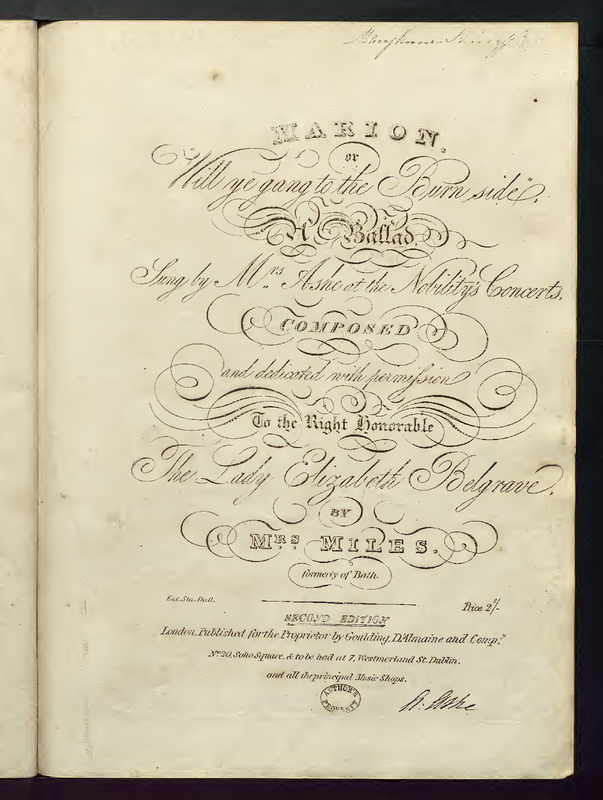 MARION,
or
Will ye gang to the Burn side".
A Ballad,
Sung by Mrs. Ashe at the Nobility's Concerts,
COMPOSED
and dedicated with permission
To the Right Honorable
The Lady Elizabeth Belgrave,
BY
MRS. MILES.
formerly of Bath.
Ent. Sta. Hall.
Price 2/-
SECOND EDITION
London, Published for the Proprietor by Goulding, D'Almaine and Compy.
No. 20, Soho Square, & to be had at 7, Westmorland St. Dublin.
and all the principal Music Shops.
AUTHOR'S PROPERTY
A. Ashe